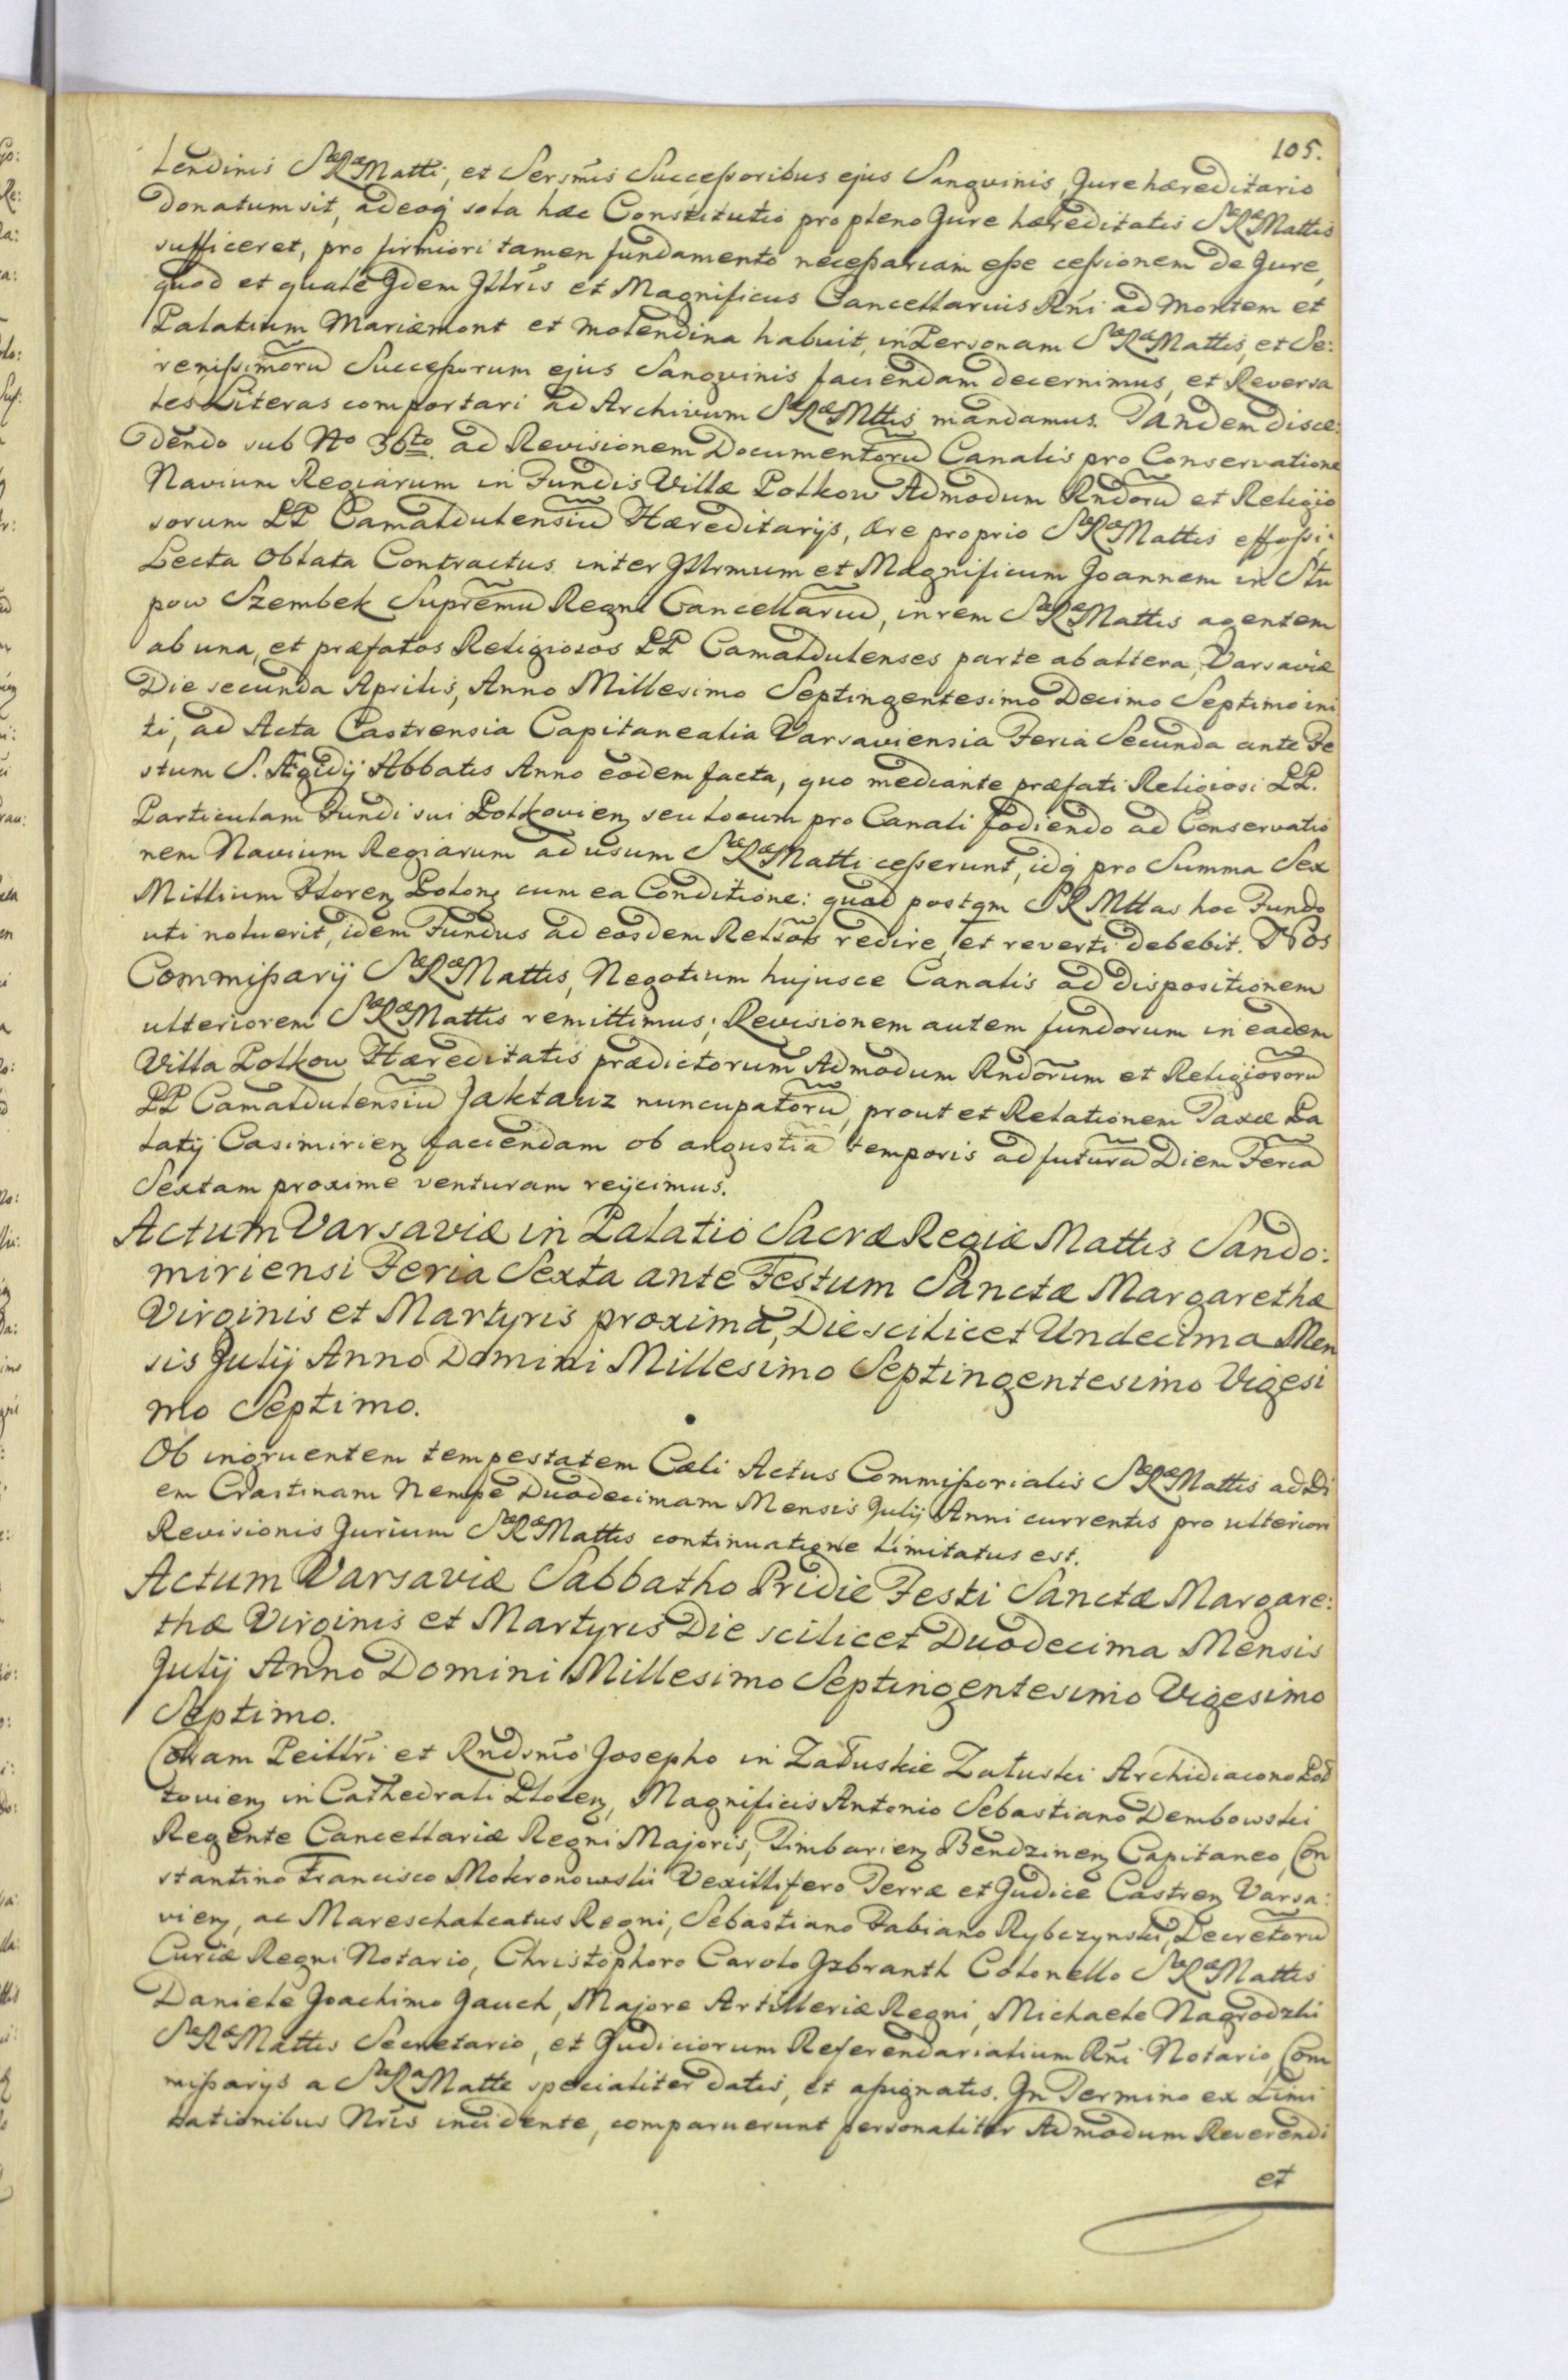 105.
lendinis SæRæMatti, et Sersm̃is Successoribus ejus Sangvinis, Jure hæreditario
donatum sit, adeoq sola hæc Constitutio pro pleno Jure hæreditatis SæRæMattis
sufficeret, pro firmiori tamen fundamento necessariam esse cessionem de Jure,
quod et quale Idem Illr̃is et Magnificus Cancellarius Rñi ad Montem et
Palatium Mariæmont et molendina habuit, in Personam SæRæMattis, et Se:
renissimorũ Successorum ejus Sangvinis faciendam decernimus, et Reversa
les Literas comportari ad Archivum SæRæMttis mandamus. Tandem disce:
dendo sub No 36to. ad Revisionem Documentorũ Canalis pro Conservatione
Navium Regiarum in Fundis Villæ Polkow Admodum Rndorũ et Religio
sorum PP Camaldulensiũ Hæreditarijs, ære proprio SæRæMattis effossi;
Lecta Oblata Contractus inter Illrmum et Magnificum Joannem in Slu
pow Szembek Supremũ Regni Cancellariũ, in rem SæRæMattis agentem
ab una, et præfatos Religiosos PP Camaldulenses parte ab altera, Varsaviæ
Die secunda Aprilis, Anno Millesimo Septingentesimo Decimo Septimo ini
ti, ad Acta Castrensia Capitanealia Varsaviensia Feria Secunda ante Fe
stum S. Ægidij Abbatis Anno eodem facta, quo mediante præfati Religiosi PP.
Particulam Fundi sui Polkovienʒ seu locum pro Canali fodiendo ad Conservatio
nem Navium Regiarum ad usum SæRæMatti cesserunt, idq pro Summa Sex
Millium Florenʒ Polonʒ cum ea Conditione: quod postqm SRMttas hoc Fundo
uti noluerit, idem Fundus ad eosdem Relios redire, et reverti debebit. Nos
Commissarij SæRæMattis, Negotium hujusce Canalis ad dispositionem
ulteriorem SæRæMattis remittimus; Revisionem autem fundorum in eadem
Villa Polkow Hæreditatis prædictorum Admodum Rndorum et Religiosorũ
PP Camaldulensiũ Jaktarz nuncupatorũ, prout et Relationem Taxæ Pa
latij Casimirienʒ faciendam ob angustiã temporis ad futurã Diem Feriã
Sextam proxime venturam rejcimus.
Actum Varsaviæ in Palatio Sacræ Regiæ Mattis Sando:
miriensi Feria Sexta ante Festum Sanctæ Margarethæ
Virginis et Martyris proxima, Die scilicet Undecima Men
sis Julij Anno Domini Millesimo Septingentesimo Vigesi
mo Septimo.
Ob ingruentem tempestatem Cæli Actus Commissorialis SæRæMattis ad Di
em Crastinam Nempe Duodecimam Mensis Julij Anni currentis pro ulteriori
Revisionis Jurium SæRæMattis continuatione Limitatus est.
Actum Varsaviæ Sabbatho Pridie Festi Sanctæ Margare:
thæ Virginis et Martyris Die scilicet Duodecima Mensis
Julij Anno Domini Millesimo Septingentesimo Vigesimo
Septimo.
Coram Peillr̃i et Rndsm̃o Josepho in Załuskie Załuski Archidiacono Pod
tovienʒ in Cathedrali Plocenʒ, Magnificis Antonio Sebastiano Dembowski
Regente Cancellariæ Regni Majoris, Timbarienʒ Bendzinenʒ Capitaneo, Con
stantino Francisco Mokronowski Vexillifero Terræ et Judice Castrenʒ Varsa:
vienʒ, ac Mareschalcatus Regni, Sebastiano Fabiano Rybczynski, Decretorũ
Curiæ Regni Notario, Christophoro Carolo Izbranth Colonello SæRæMattis
Daniele Joachimo Jauch, Majore Artilleriæ Regni, Michaele Nagrodzki
SæRæMattis Secretario, et Judiciorum Referendarialium Rñi Notario, Com
missarijs a SaRaMatte specialiter datis, et assignatis. In Termino ex Limi
tationibus Nris incidente, comparuerunt personaliter Admodum Reverendi
et